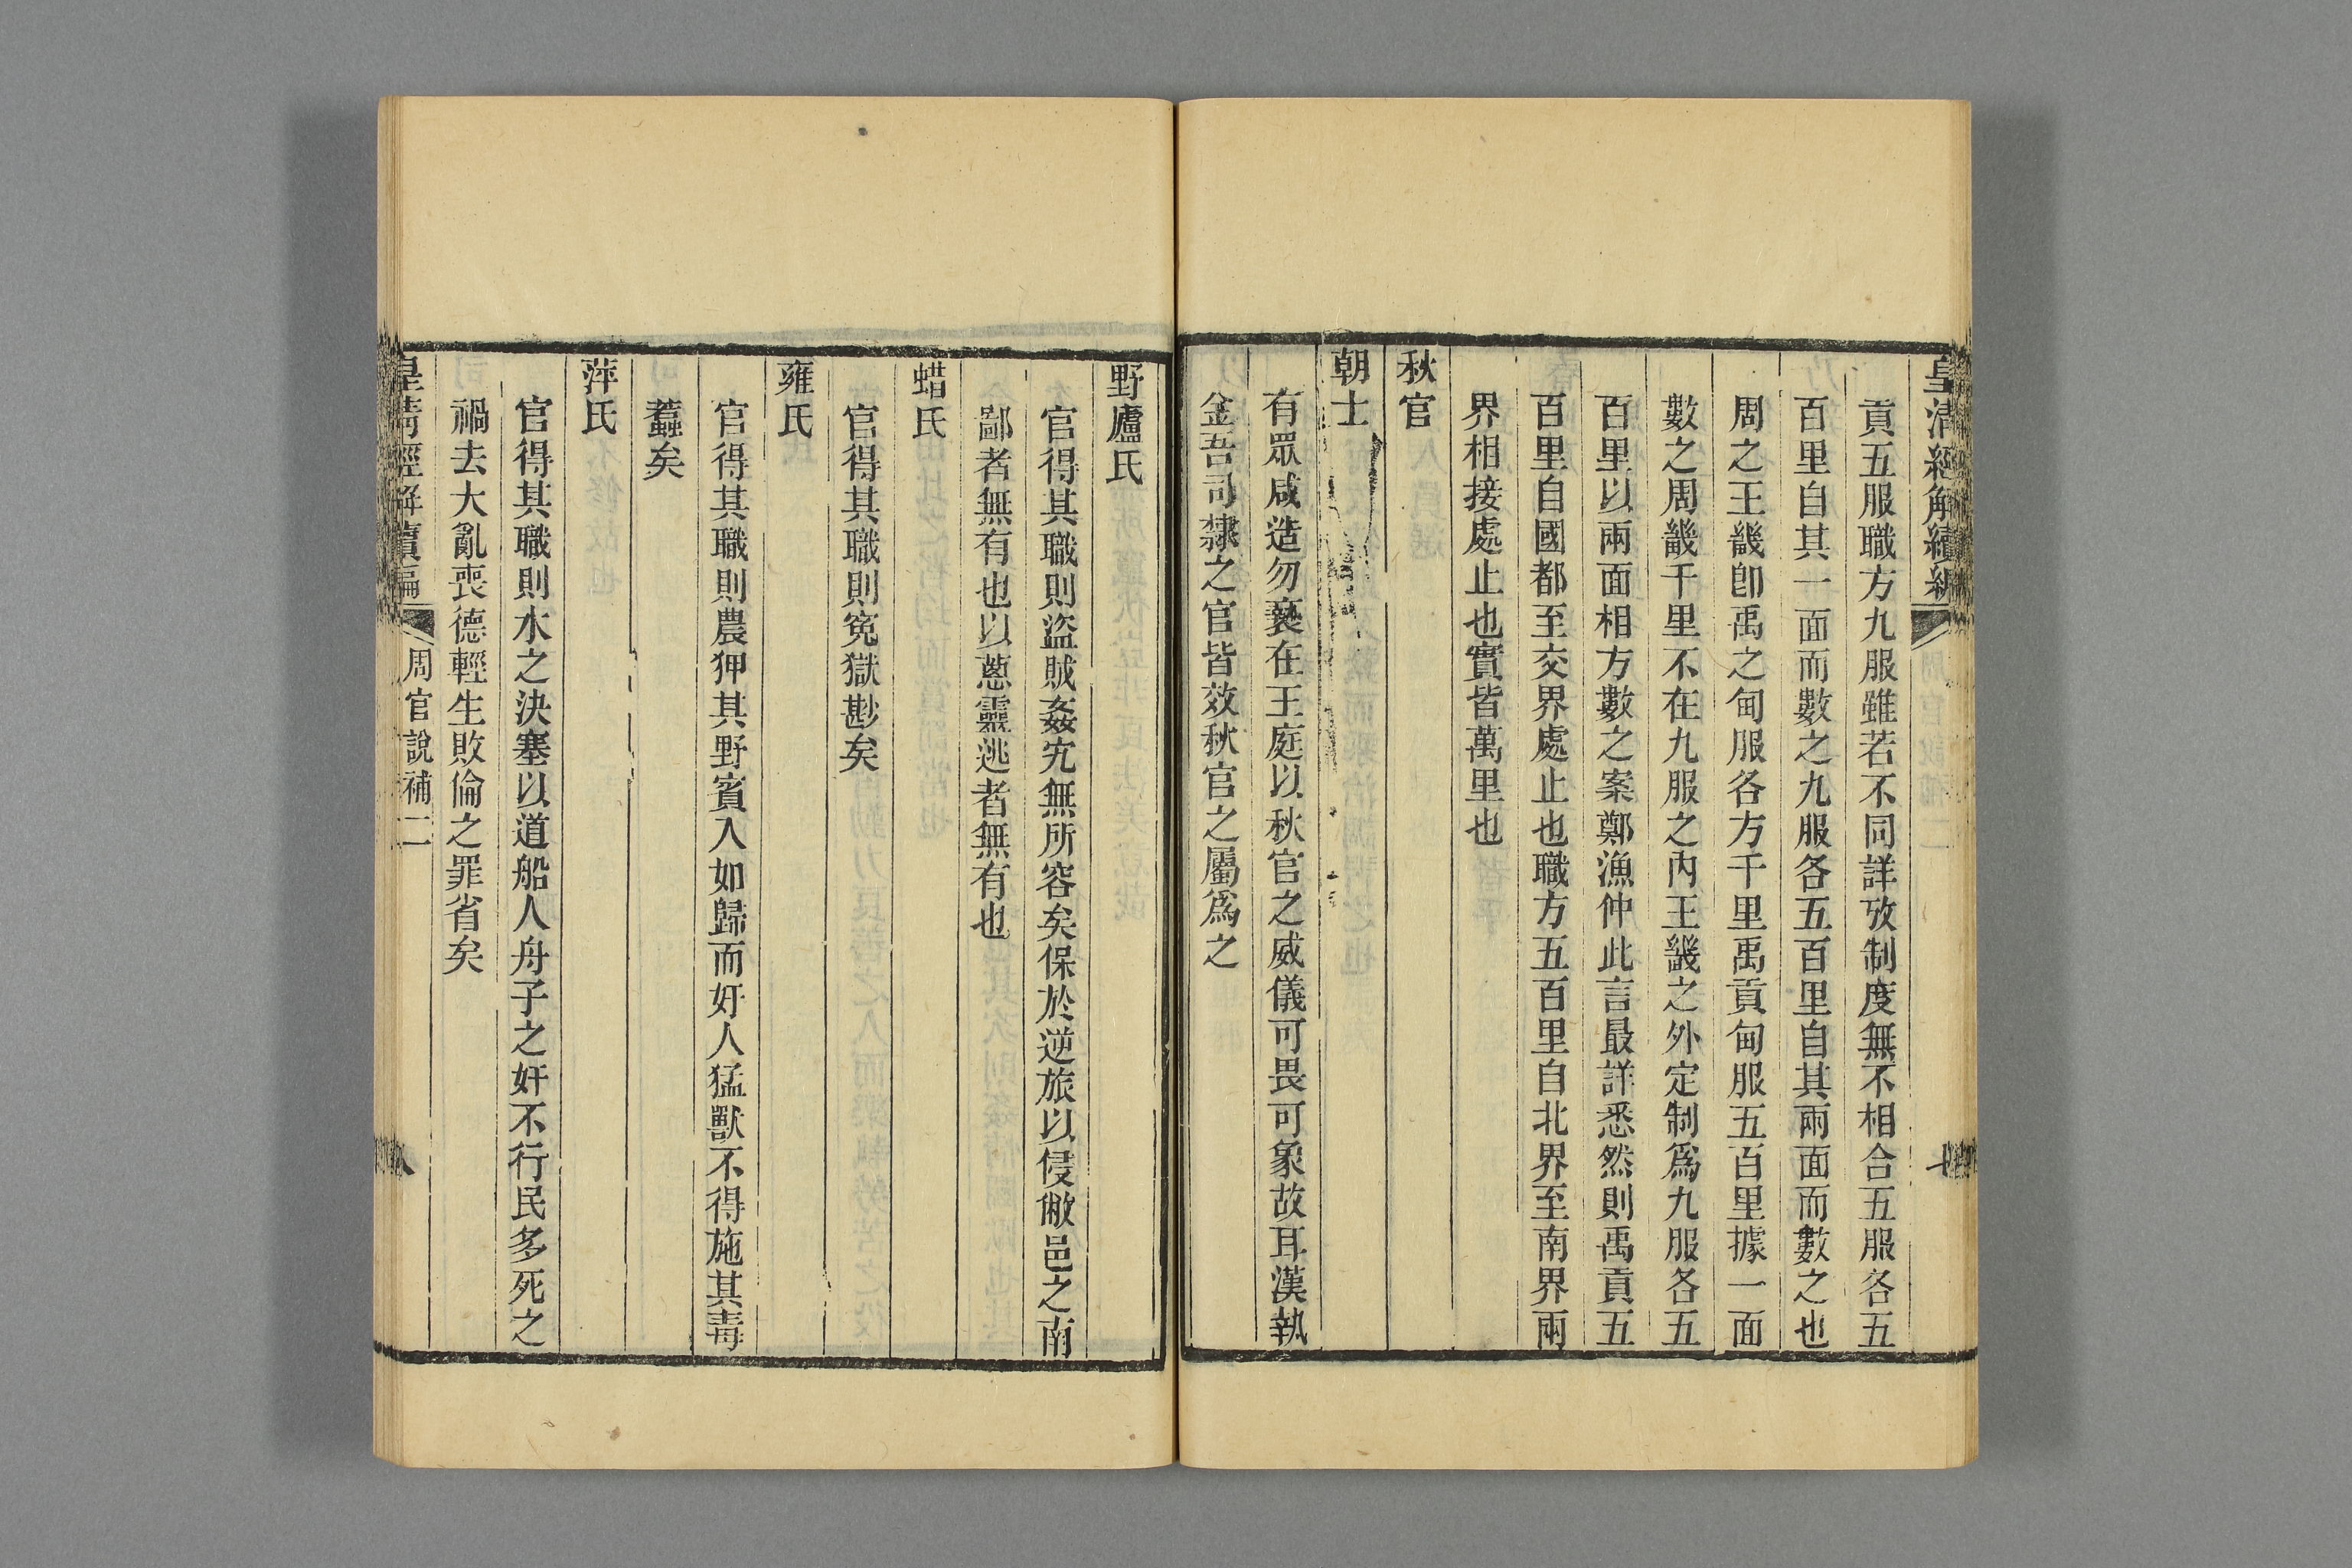 皇清經解續編
貢五服職方九服雖若不同詳攷制度無不相合五服各五
百里自其一面而數之九服各五百里自其兩面而數之也
周之王畿卽禹之甸服各方千里禹貢甸服五百里據一面
數之周畿千里不在九服之內王畿之外定制爲九服各五
百里以兩面相方數之案鄭漁仲此言最詳悉然則禹貢五
百里自國都至交界處止也職方五百里自北界至南界兩
界相接處止也實皆萬里也
秋官
朝士
有眾咸造勿褻在王庭以秋官之威儀可畏可象故耳漢執
金吾司隸之官皆效秋官之屬爲之
野廬氏
官得其職則盜賊姦宄無所容矣保於逆旅以侵敝邑之南
鄙者無有也以蔥靈逃者無有也
蜡氏
官得其職則冤獄尠矣
雍氏
官得其職則農狎其野賓入如歸而奸人猛獸不得施其毒
蠚矣
萍氏
官得其職則水之決塞以道船人舟子之奸不行民多死之
禍去大亂喪德輕生敗倫之罪省矣
皇清經解續編
周官說補二
八